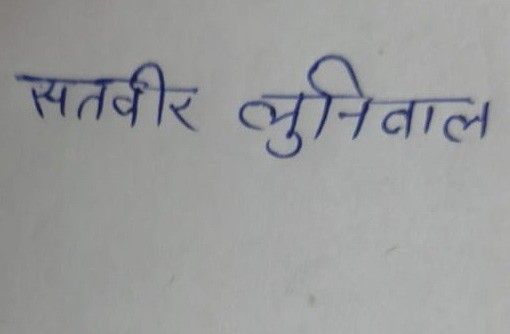 सतवीर लुनिवाल